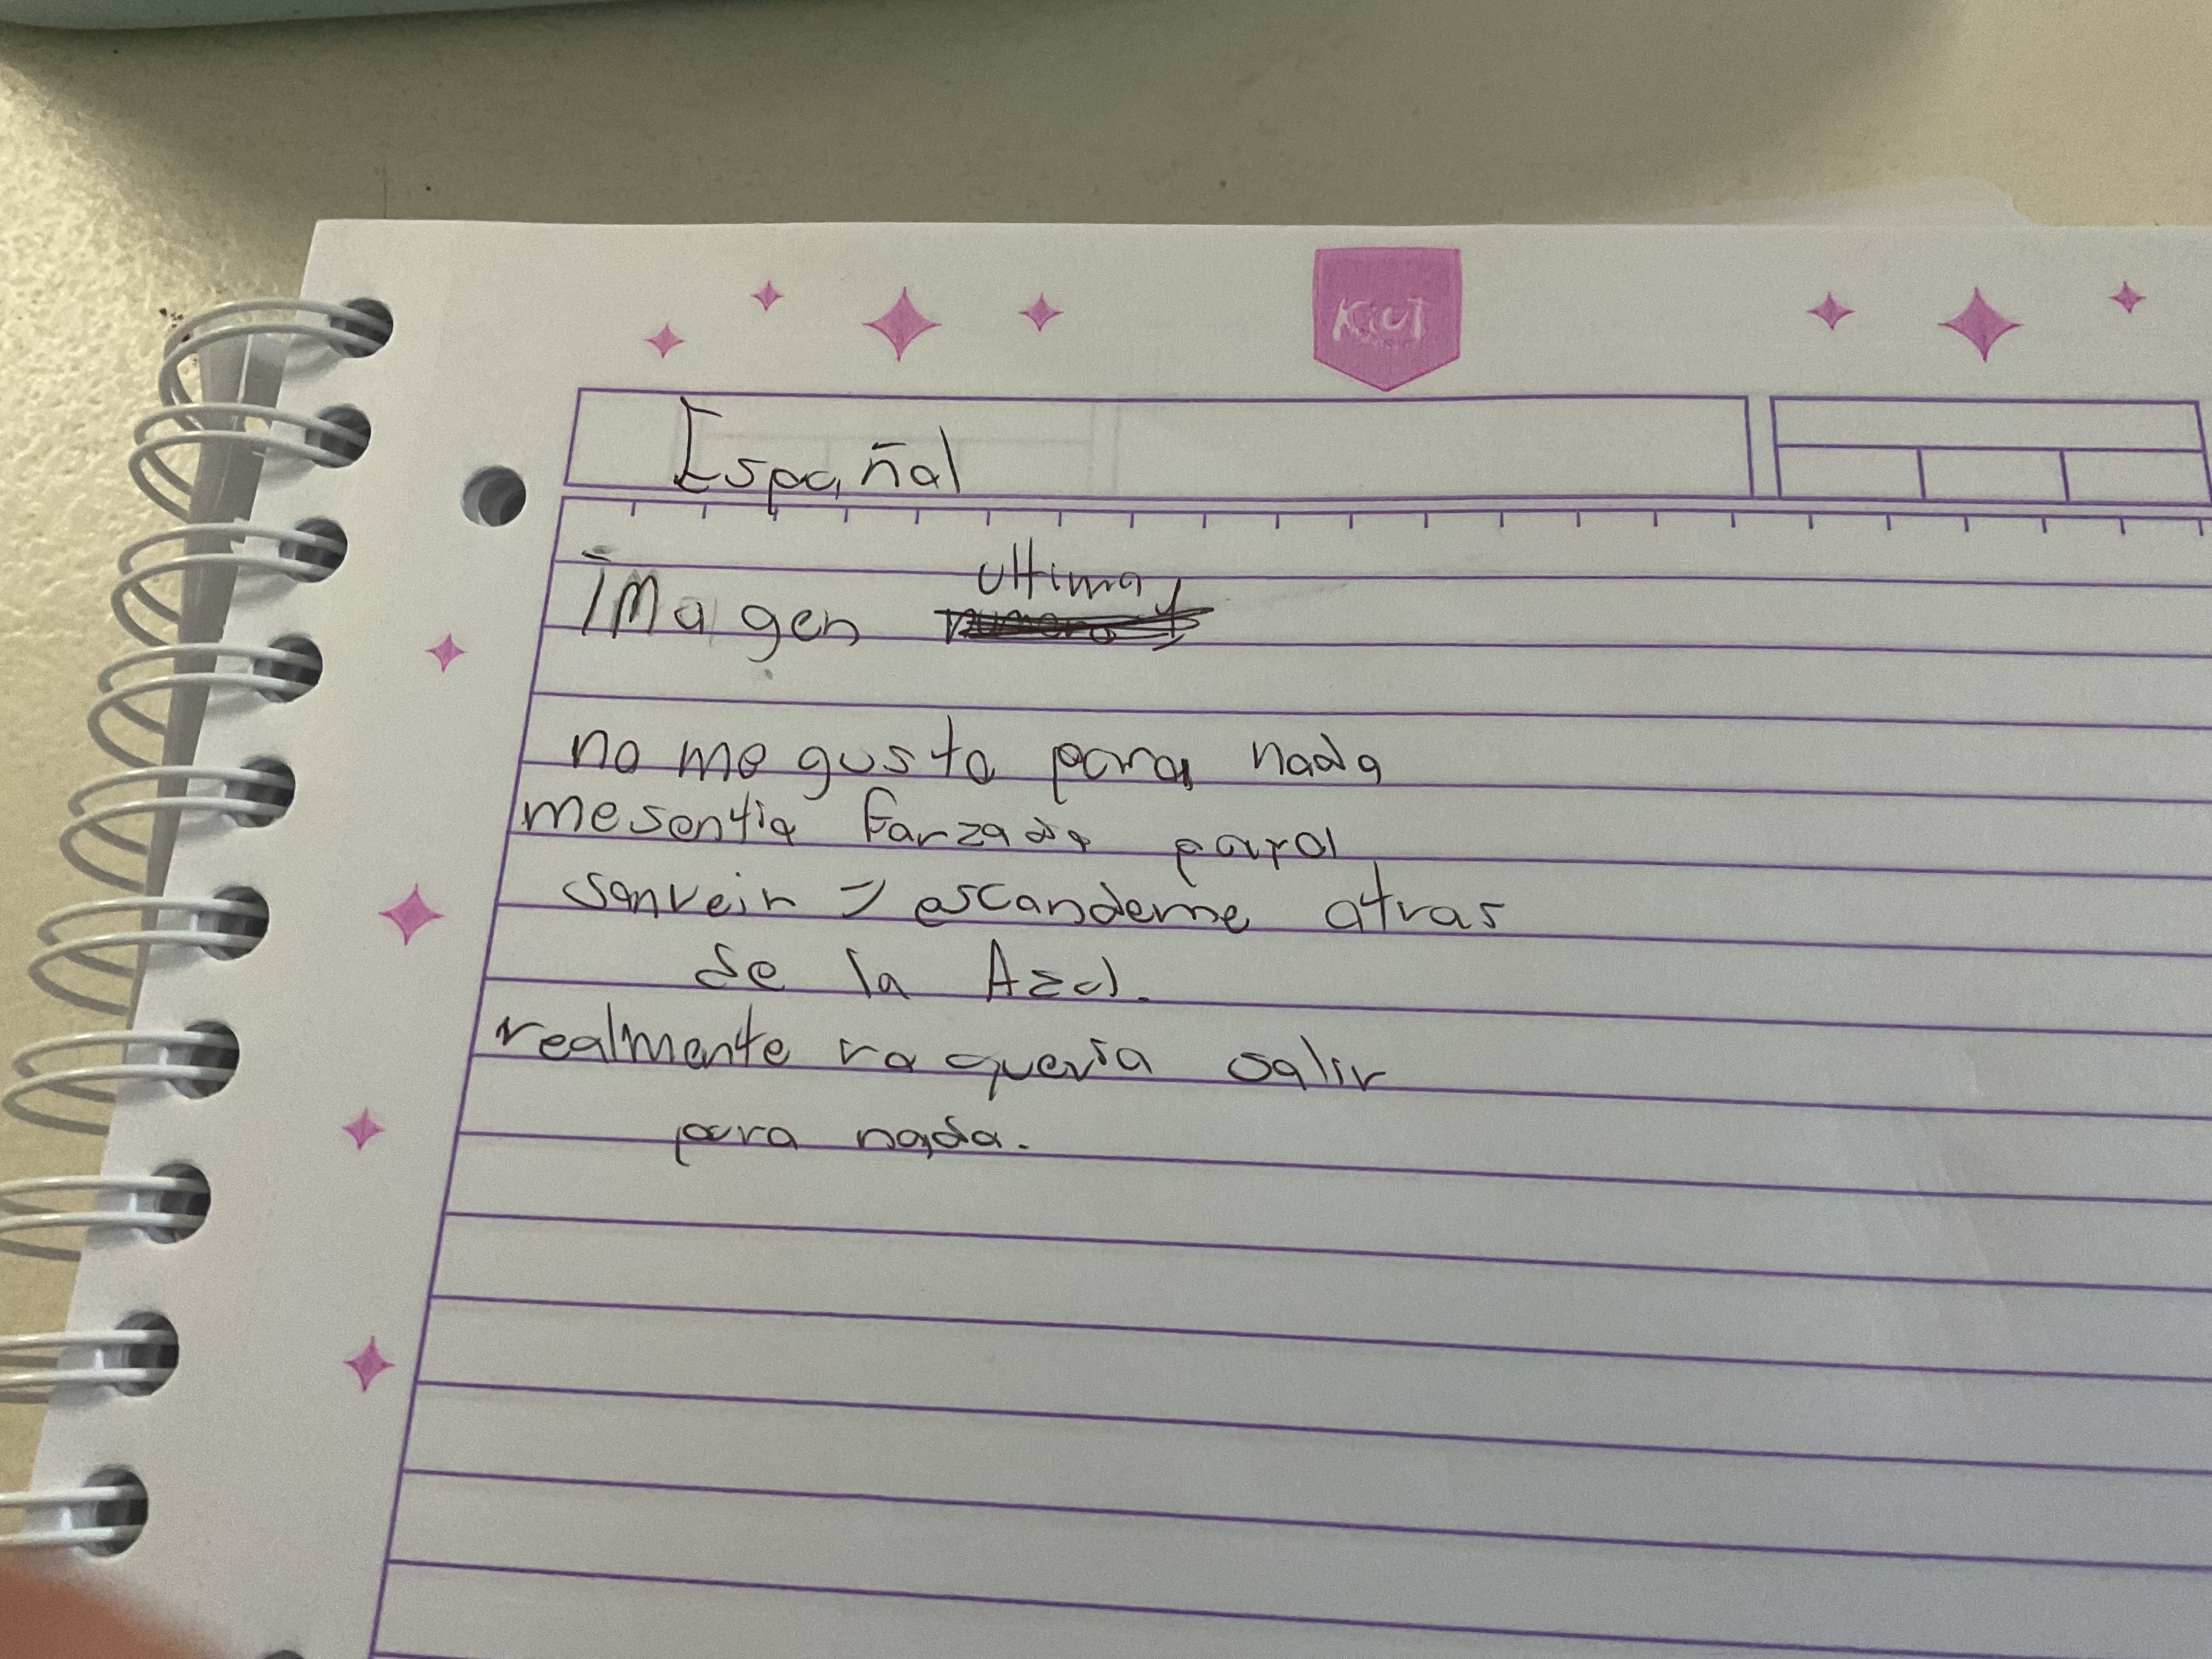 Kiut
Español
Imagen ultima
no me gusto para nada
me sentia Forzada para
sonreir y esconderme atras
de la Azul.
realmente no queria salir
para nada.